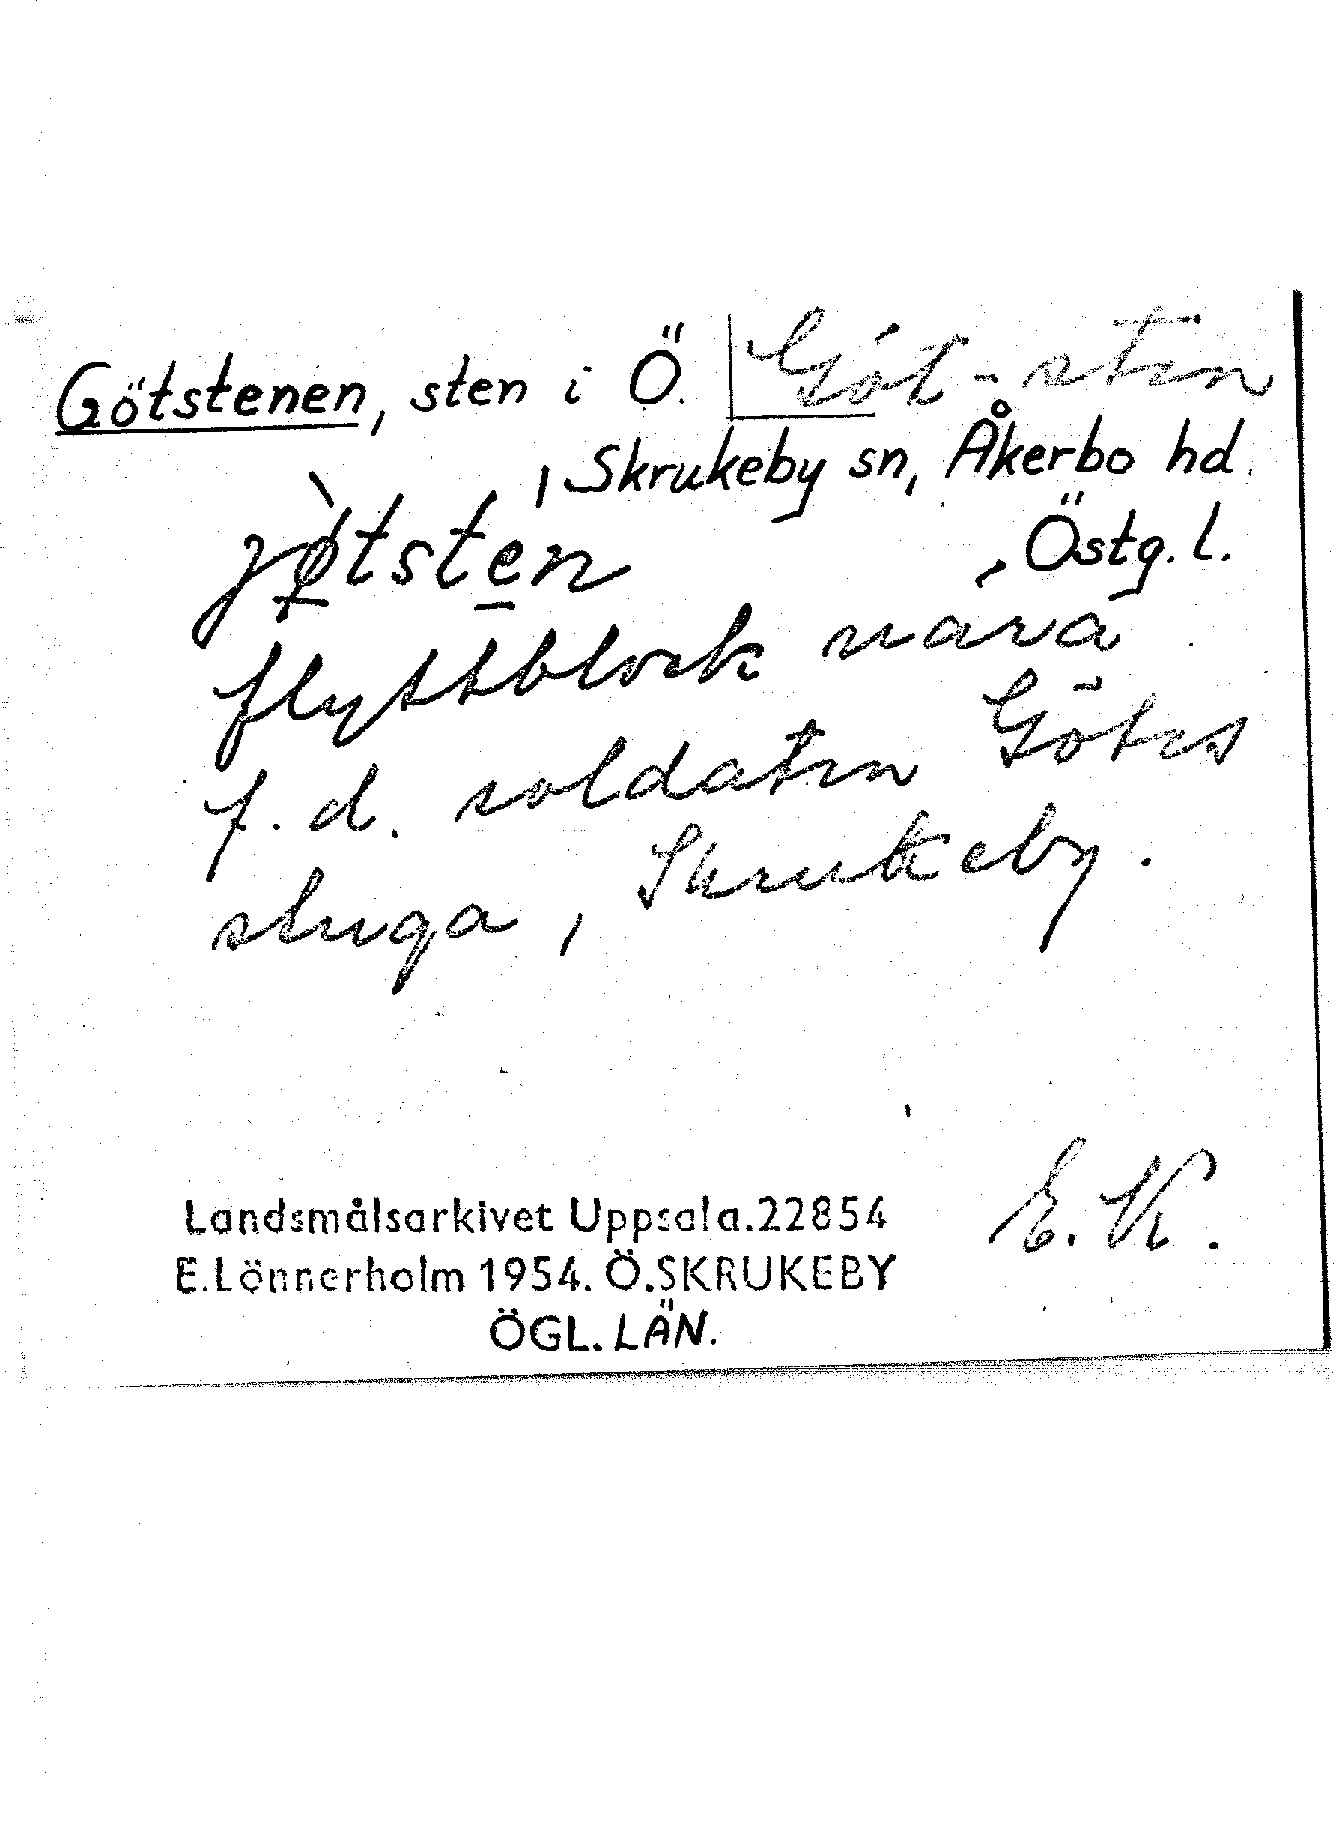 Götstenen, sten i Ö. Göt-sten
, Skrukeby sn, Åkerbo hd.
, Östg. l.
jø̀tsten
flyttblock nära
f. d. soldaten Götes
stuga, Skrukeby.
E. K.
Landsmålsarkivet Uppsala.22854
E.Lönnerholm 1954. Ö.SKRUKEBY
ÖGL. LÄN.